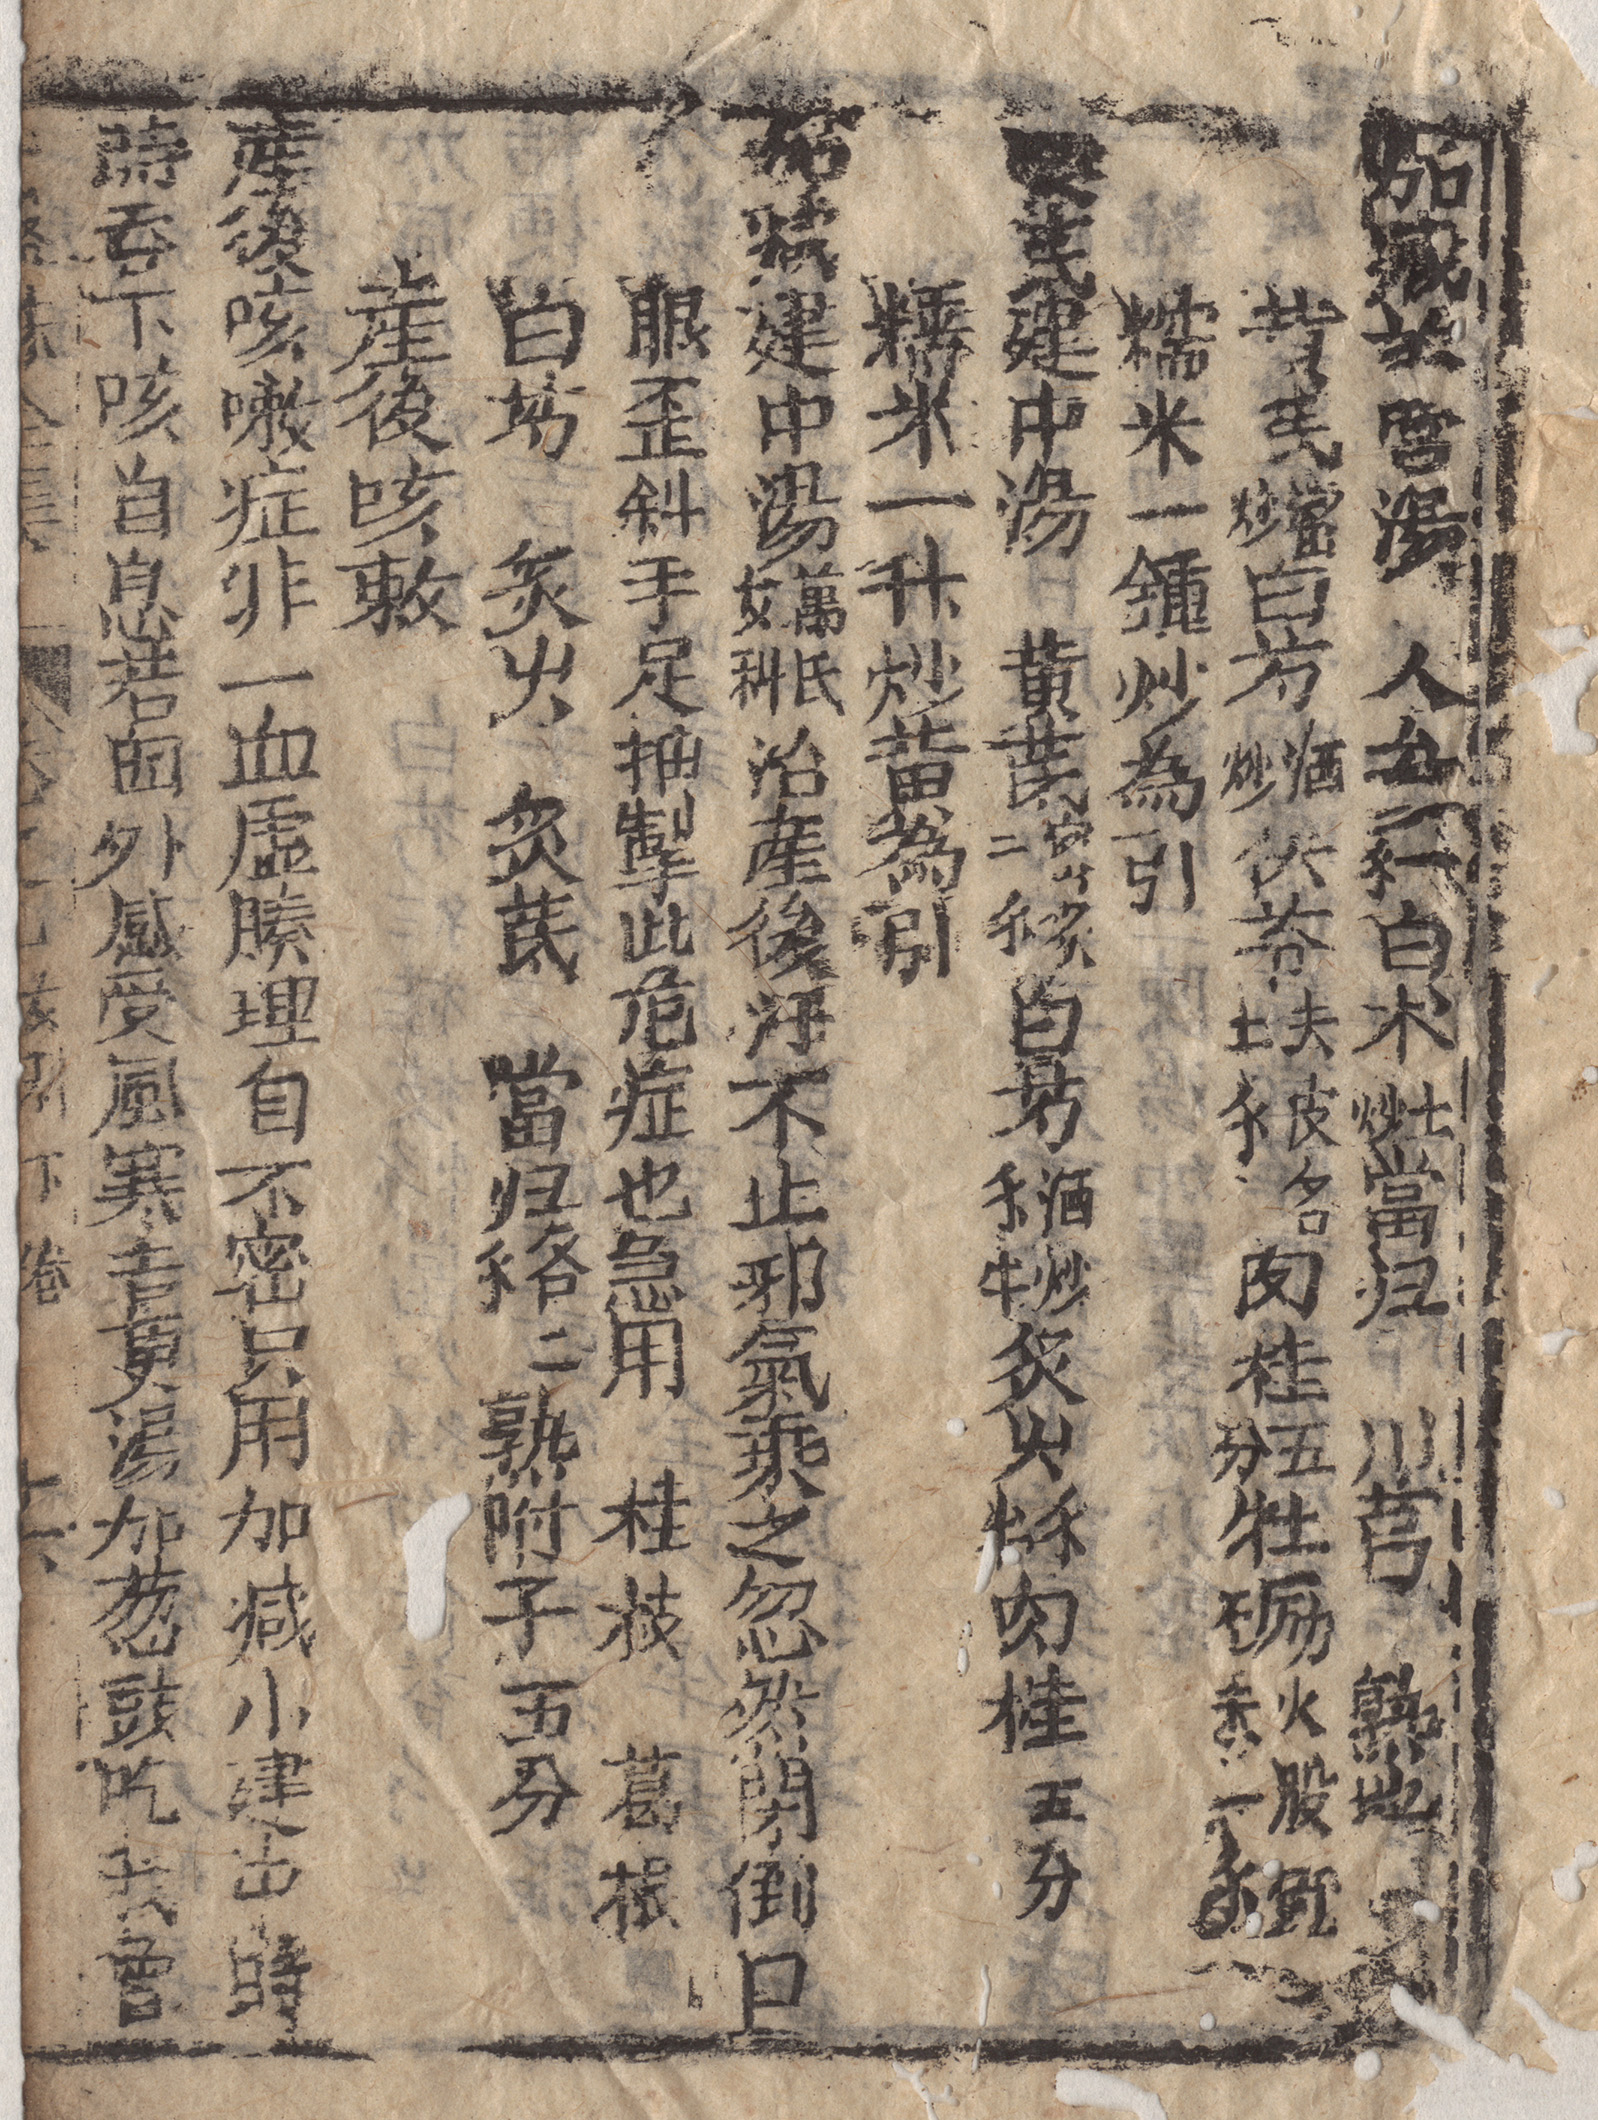 加減芎歸湯 人參一錢 白朮土炒 當归 川芎 熟地
黃芪蜜炒 白芍酒炒 伏苓去皮各七錢 肉桂五分 牡砺火股
糯米一鍾炒為引
黃芪建中湯 黃芪蜜炙二錢 白芍酒炒錢半 炙艸錢半 肉桂五分
糯米一升炒黃為引
加減建中湯萬氏女科 治產後汗不止邪氣乘之忽然悶倒口
眼歪斜手足抽掣此危症也急用 桂枝 葛根
白芍 炙艸 炙芪 當归各二錢 熟附子五分
產後咳嗽
產後咳嗽症非一血虛腠理自不密只用加減小建中時
時吞下咳自息若因外感受風寒杏更湯加葱豉吃
下卷